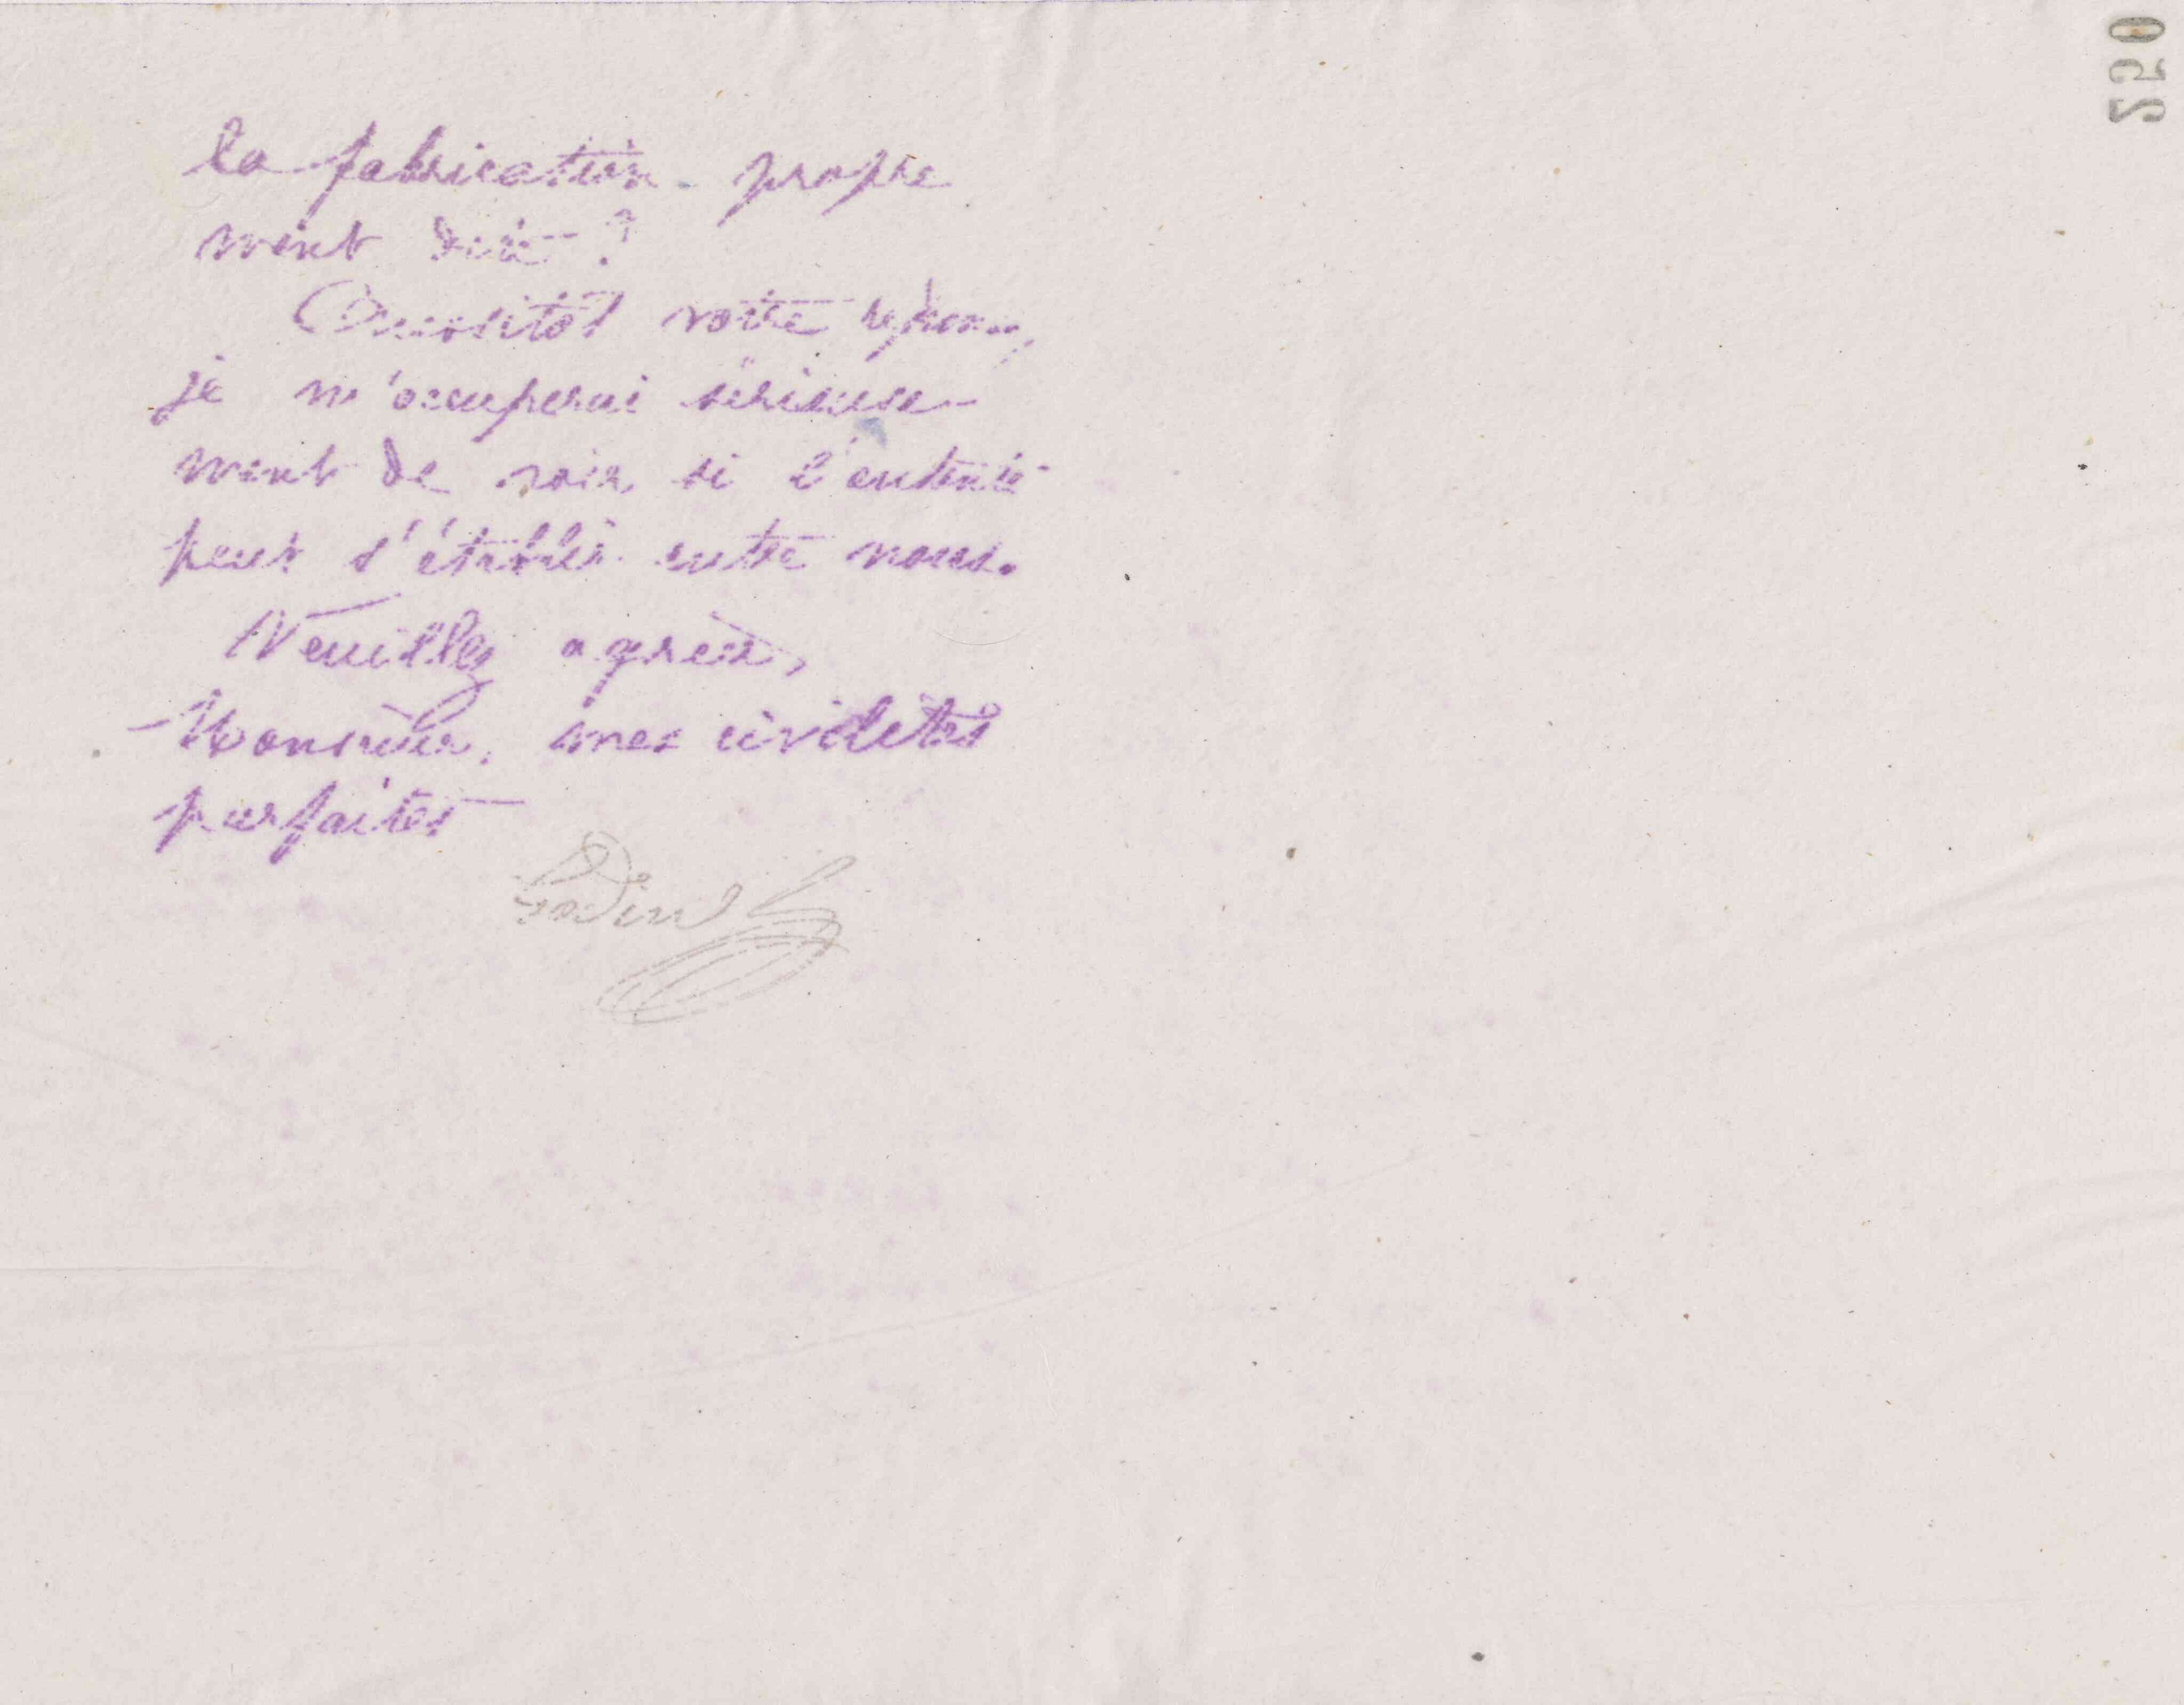 250
la fabrication propre
ment dite ?
Aussitôt votre réponse,
je m'occuperai sérieuse-
ment de voir si l'entente
peut s'établir entre nous.
Veuillez agréer,
Monsieur, mes civilités
parfaites
Godin